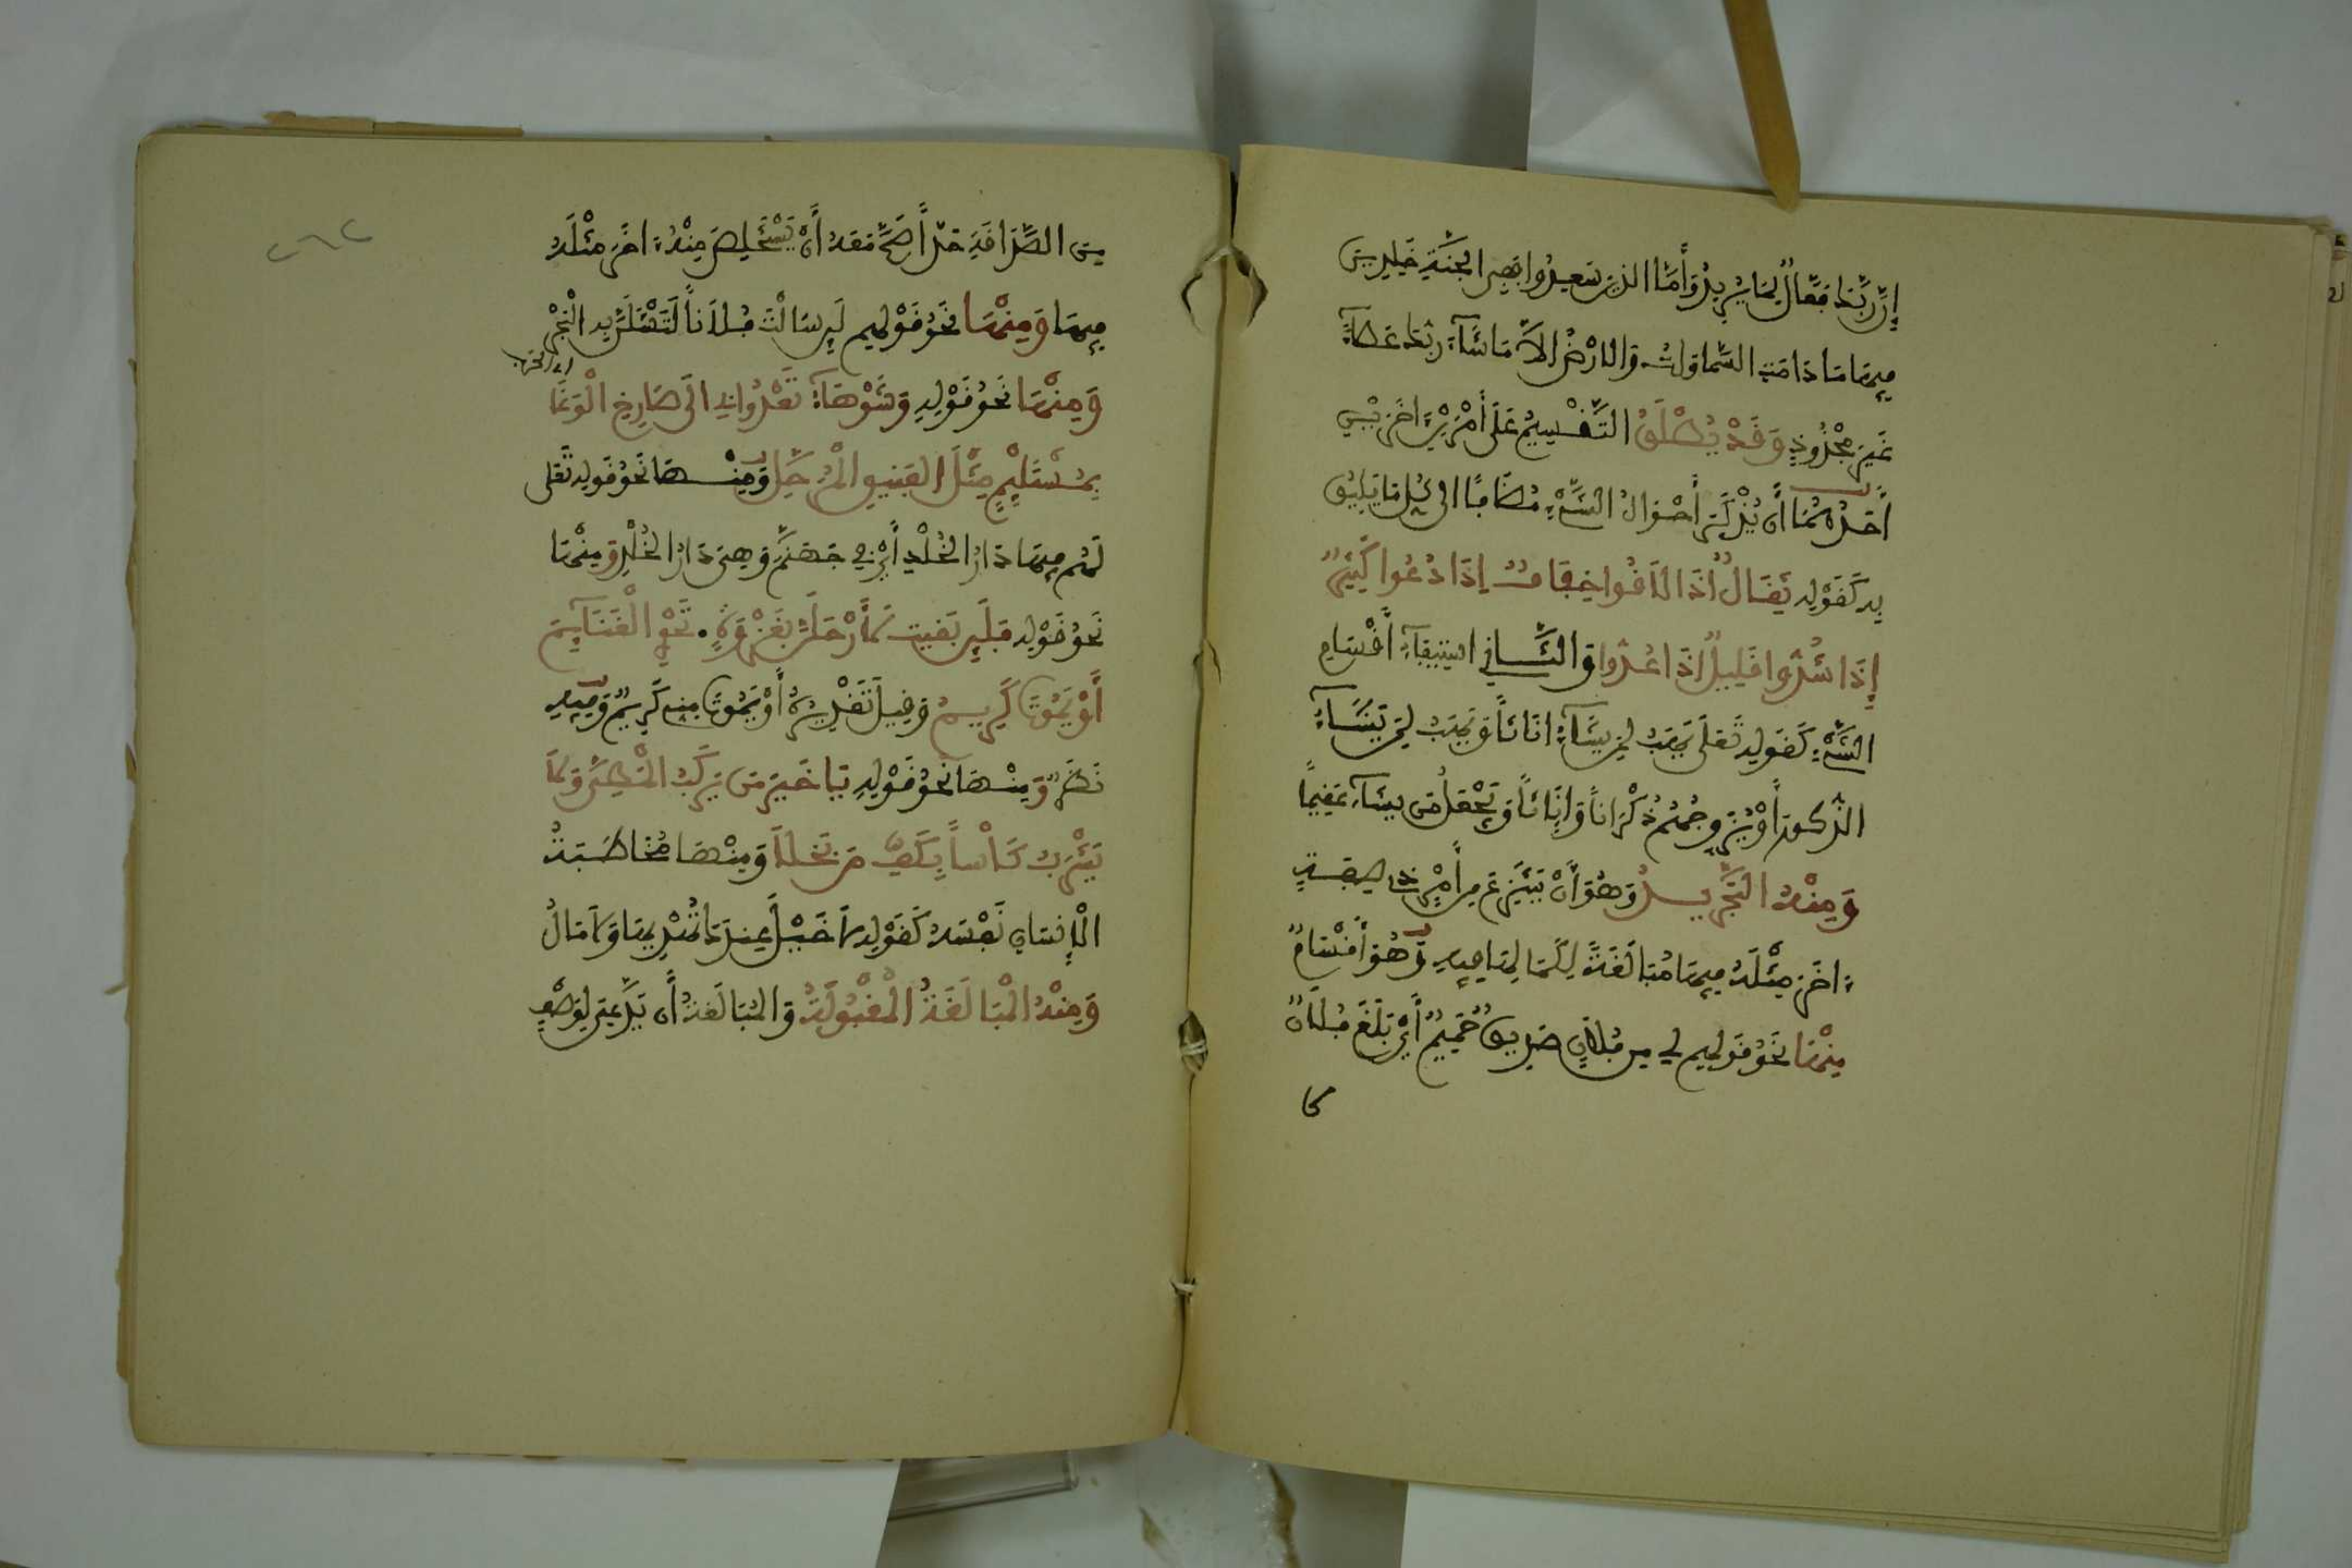 إن ربك فعال لما يريد وأما الذين سعدوا ففي الجنة خلدين
فيها ما دامت السماوات والارض الا ما شاء ربك عطاء
غير مجذوذ وقد يطلق التقسيم على أمرين اخرين
أحدهما أن يذكر أحوال الشيء مضافا الى كل ما يليق
به كقوله ثقال اذا لاقوا خفاف إذا دعوا كثير
إذا شدوا قليل اذا عدوا والثاني استيفاء أقسام
الشيء كقوله تعلى يهب لمن يشاء اناثا ويهب لمن يشاء
الذكور أو يزوجهم ذكرانا وإناثا ويجعل من يشاء عقيما
ومنه التجريد وهو أن ينتزع من أمر ذي صفة
ءاخر مثله فيها مبالغة لكمالها فيه وهو أقسام
منها نحو قولهم لي من فلان صديق حميم أي بلغ فلان
من الصداقة حدا صح معه أن يستخلص منه ءاخر مثله
فيها ومنها نحو قولهم لين سالت فلانا لتسئلن به البحر
ومنها نحو قوله وشوهاء تعدوا بي الى صارخ الوغا
اي الحرب
بمستلئم مثل الفنيق المرحل ومنها نحو قوله تعلى
لهم فيها دار الخلد أي في جهنم وهي دار الخلد ومنها
نحو قوله فلين بقيت لأرحلن بغزوة . نحو الغنايم
أو يموت كريم وقيل تقديره أو يموت مني كريم وفيه
نظر ومنها نحو قوله يا خير من يركب المطي ولا
يشرب كأسا بكف من بخلا ومنها مخاطبة
الإنسان نفسه كقوله لا خيل عندك تهديها ولا مال
ومنه المبالغة المقبولة والمبالغة أن يدعى لوصف